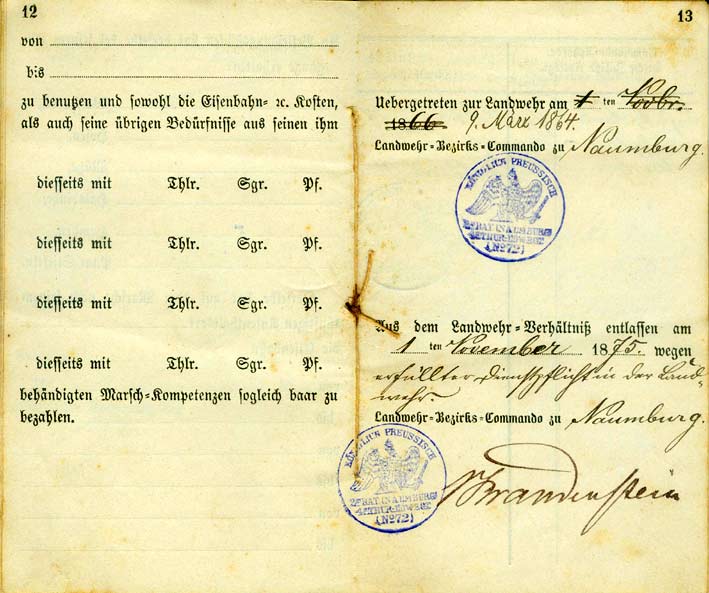 12
von
bis
zu benutzen und sowohl die Eisenbahn- ꝛc. Kosten,
als auch seine übrigen Bedürfnisse aus seinen ihm
diesseits mit Thlr. Sgr. Pf.
diesseits mit Thlr. Sgr. Pf.
diesseits mit Thlr. Sgr. Pf.
diesseits mit Thlr. Sgr. Pf.
behändigten Marsch-Kompetenzen sogleich baar zu
bezahlen.
13
Uebergetreten zur Landwehr am 1 ten Novbr.
1866. 9. März 1864.
Landwehr-Bezirks-Commando zu Naumburg.
KÖNIGLICH PREUSSISCH
(No 72)
Aus dem Landwehr-Verhältniß entlassen am
1 ten November 1875. wegen
erfüllter Dienstpflicht in der Land-
wehr
Landwehr-Bezirks-Commando zu Naumburg.
KÖNIGLICH PREUSSISCH
(No 72)
Brandenstein